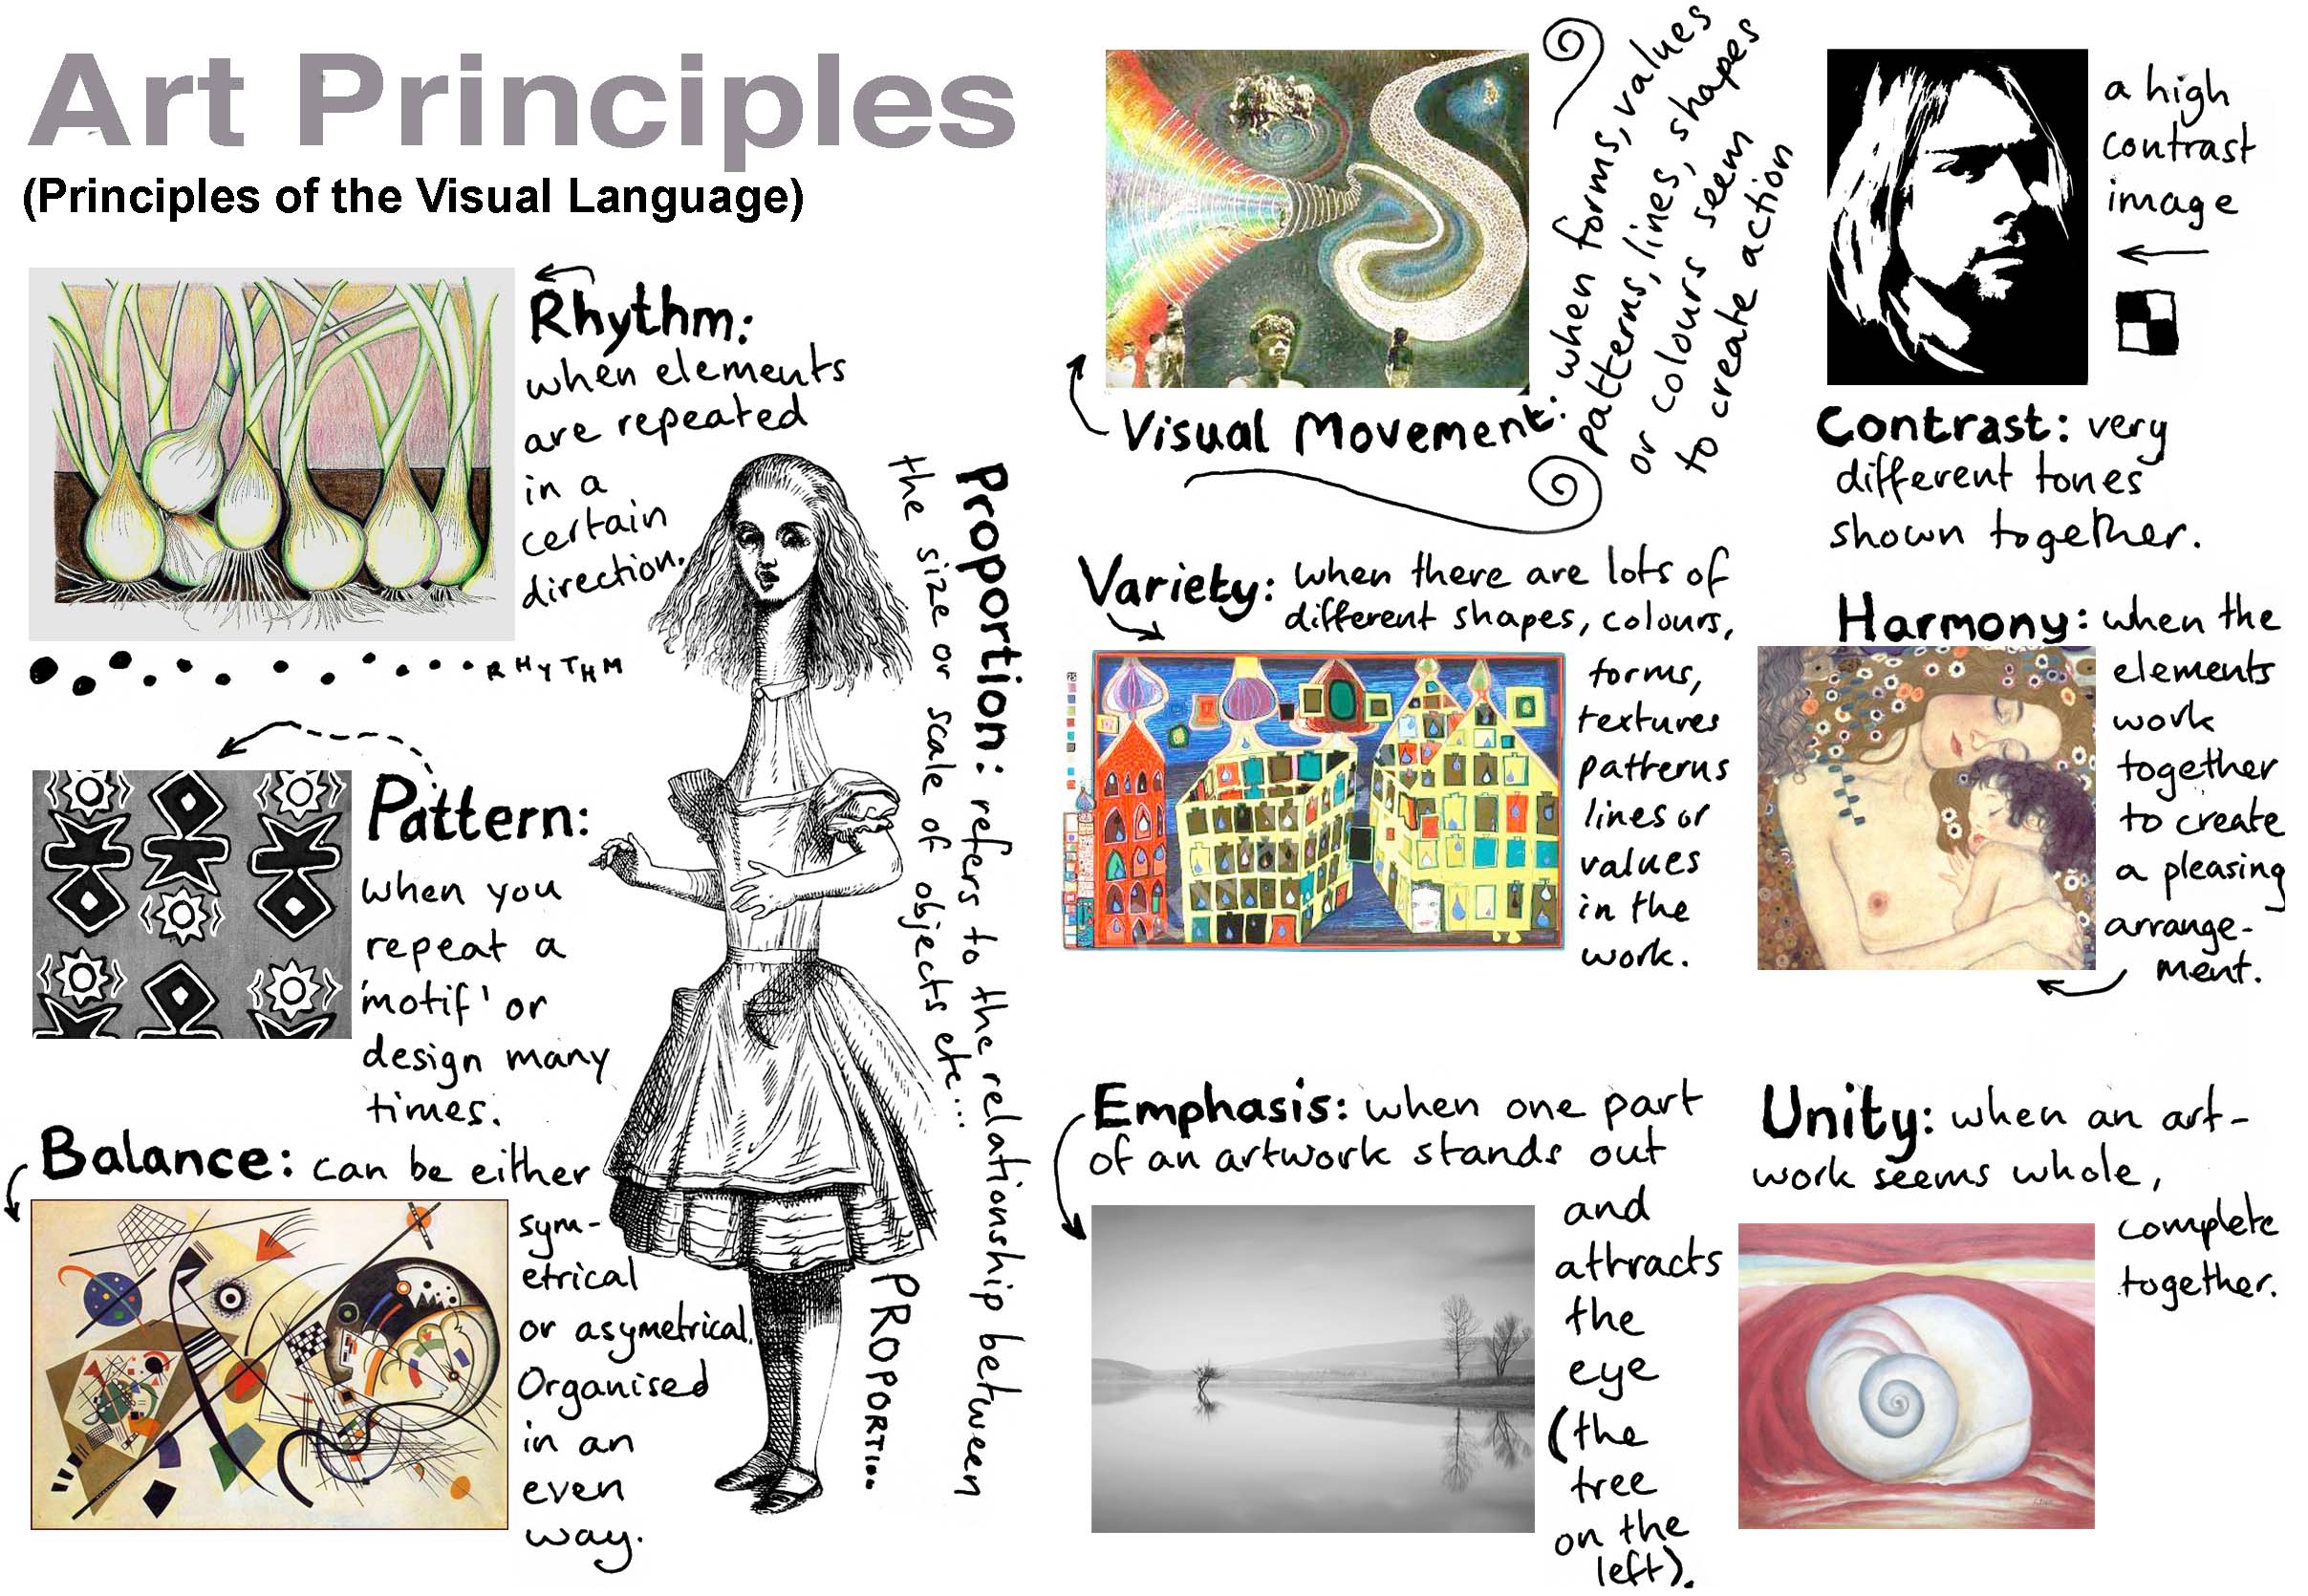 Art Principles
(Principles of the Visual Language)
Rhythm:
when elements
are repeated
in a
certain
direction.
RHYTHM
Pattern:
when you
repeat a
'motif' or
design many
times.
Balance: can be either
sym-
etrical
or asymetrical.
Organised
in an
even
way.
Proportion: refers to the relationship between
the size or scale of objects etc...
PROPORTION
Visual Movement: when forms, values
patterns, lines, shapes
or colours seem
to create action
a high
contrast
image
Contrast: very
different tones
shown together.
Variety: when there are lots of
different shapes, colours,
forms,
textures
patterns
lines or
values
in the
work.
Harmony: when the
elements
work
together
to create
a pleasing
arrange-
ment.
Emphasis: when one part
of an artwork stands out
and
attracts
the
eye
(the
tree
on the
left).
Unity: when an art-
work seems whole,
complete
together.